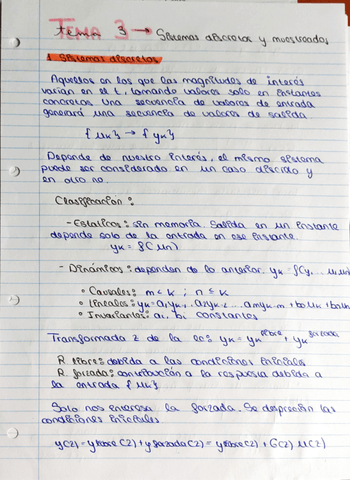 Tema 3 → Sistemas discretos y muestreados
1. Sistemas discretos
Aquellos en los que las magnitudes de interés
varían en el t, tomando valores solo en instantes
concretos. Una secuencia de valores de entrada
generará una secuencia de valores de salida
{uk} → {yk}
Depende de nuestro interés, el mismo sistema
puede ser considerado en un caso discreto y
en otro no.
Clasificación:
- Estáticos: sin memoria. Salida en un instante
depende solo de la entrada en ese instante
yk = f(un)
- Dinámicos: dependen de lo anterior. yk = f(y
• Causales: m < k ; n ≤ k
• Lineales: yk = a1yk-1 a2yk-2 ... amyk-m + b0uk + b1uk
• Invariantes: ai, bi constantes
Transformada z de la ec: yk = yk libre + yk forzada
R libre: debida a las condiciones iniciales
R. forzada: contribución a la respuesta debida a
la entrada {uk}
Solo nos interesa la forzada. Se desprecian las
condiciones iniciales
y(z) = ylibre(z) + yforzada(z) = ylibre(z) + G(z) u(z)